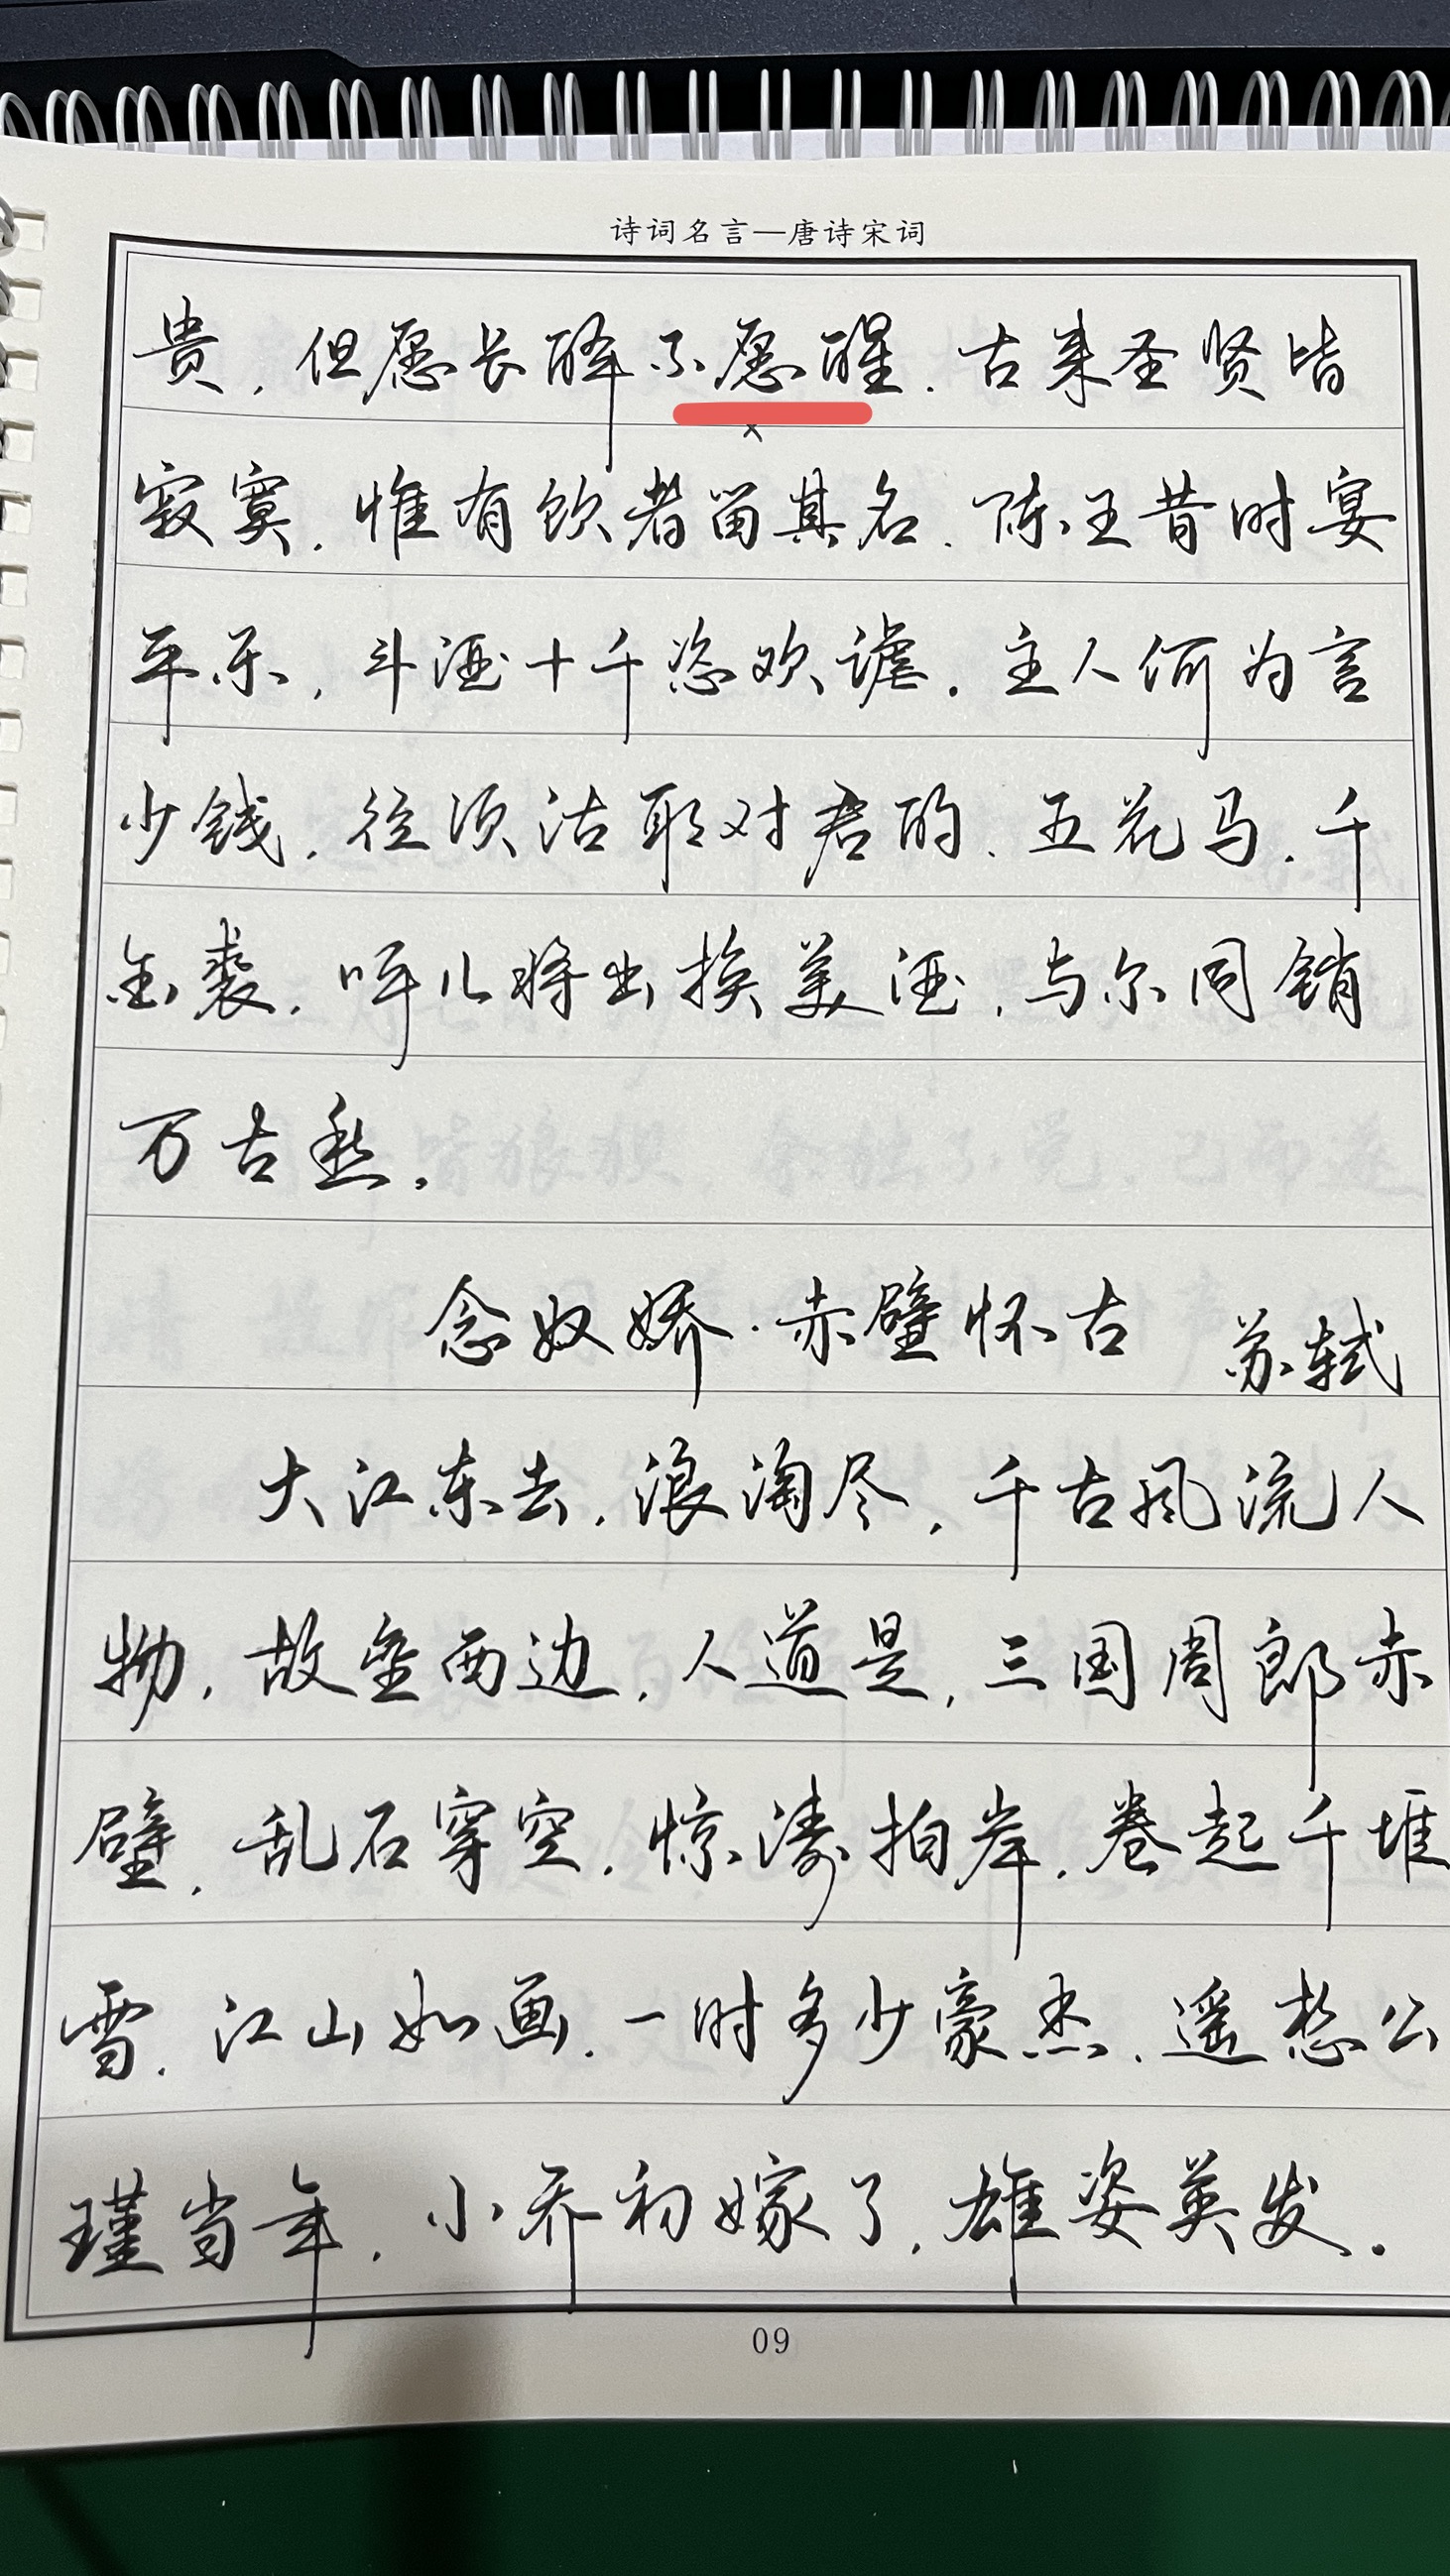 诗词名言—唐诗宋词
贵，但愿长醉不愿醒。古来圣贤皆
寂寞，惟有饮者留其名。陈王昔时宴
平乐，斗酒十千恣欢谑。主人何为言
少钱，径须沽取对君酌。五花马，千
金裘，呼儿将出换美酒，与尔同销
万古愁。
念奴娇·赤壁怀古 苏轼
大江东去，浪淘尽，千古风流人
物，故垒西边，人道是，三国周郎赤
壁，乱石穿空，惊涛拍岸，卷起千堆
雪。江山如画，一时多少豪杰。遥想公
瑾当年，小乔初嫁了，雄姿英发。
09